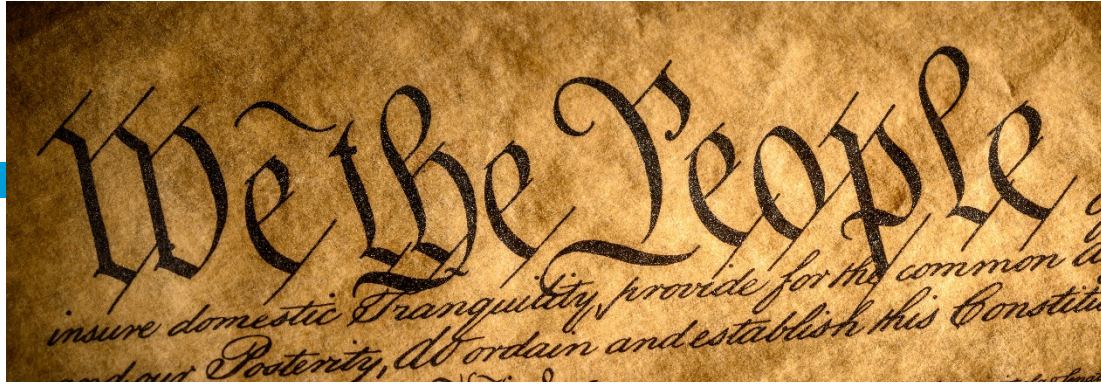 We the People
insure domestic Tranquility, provide for the common
and our Posterity, do ordain and establish this Constitu